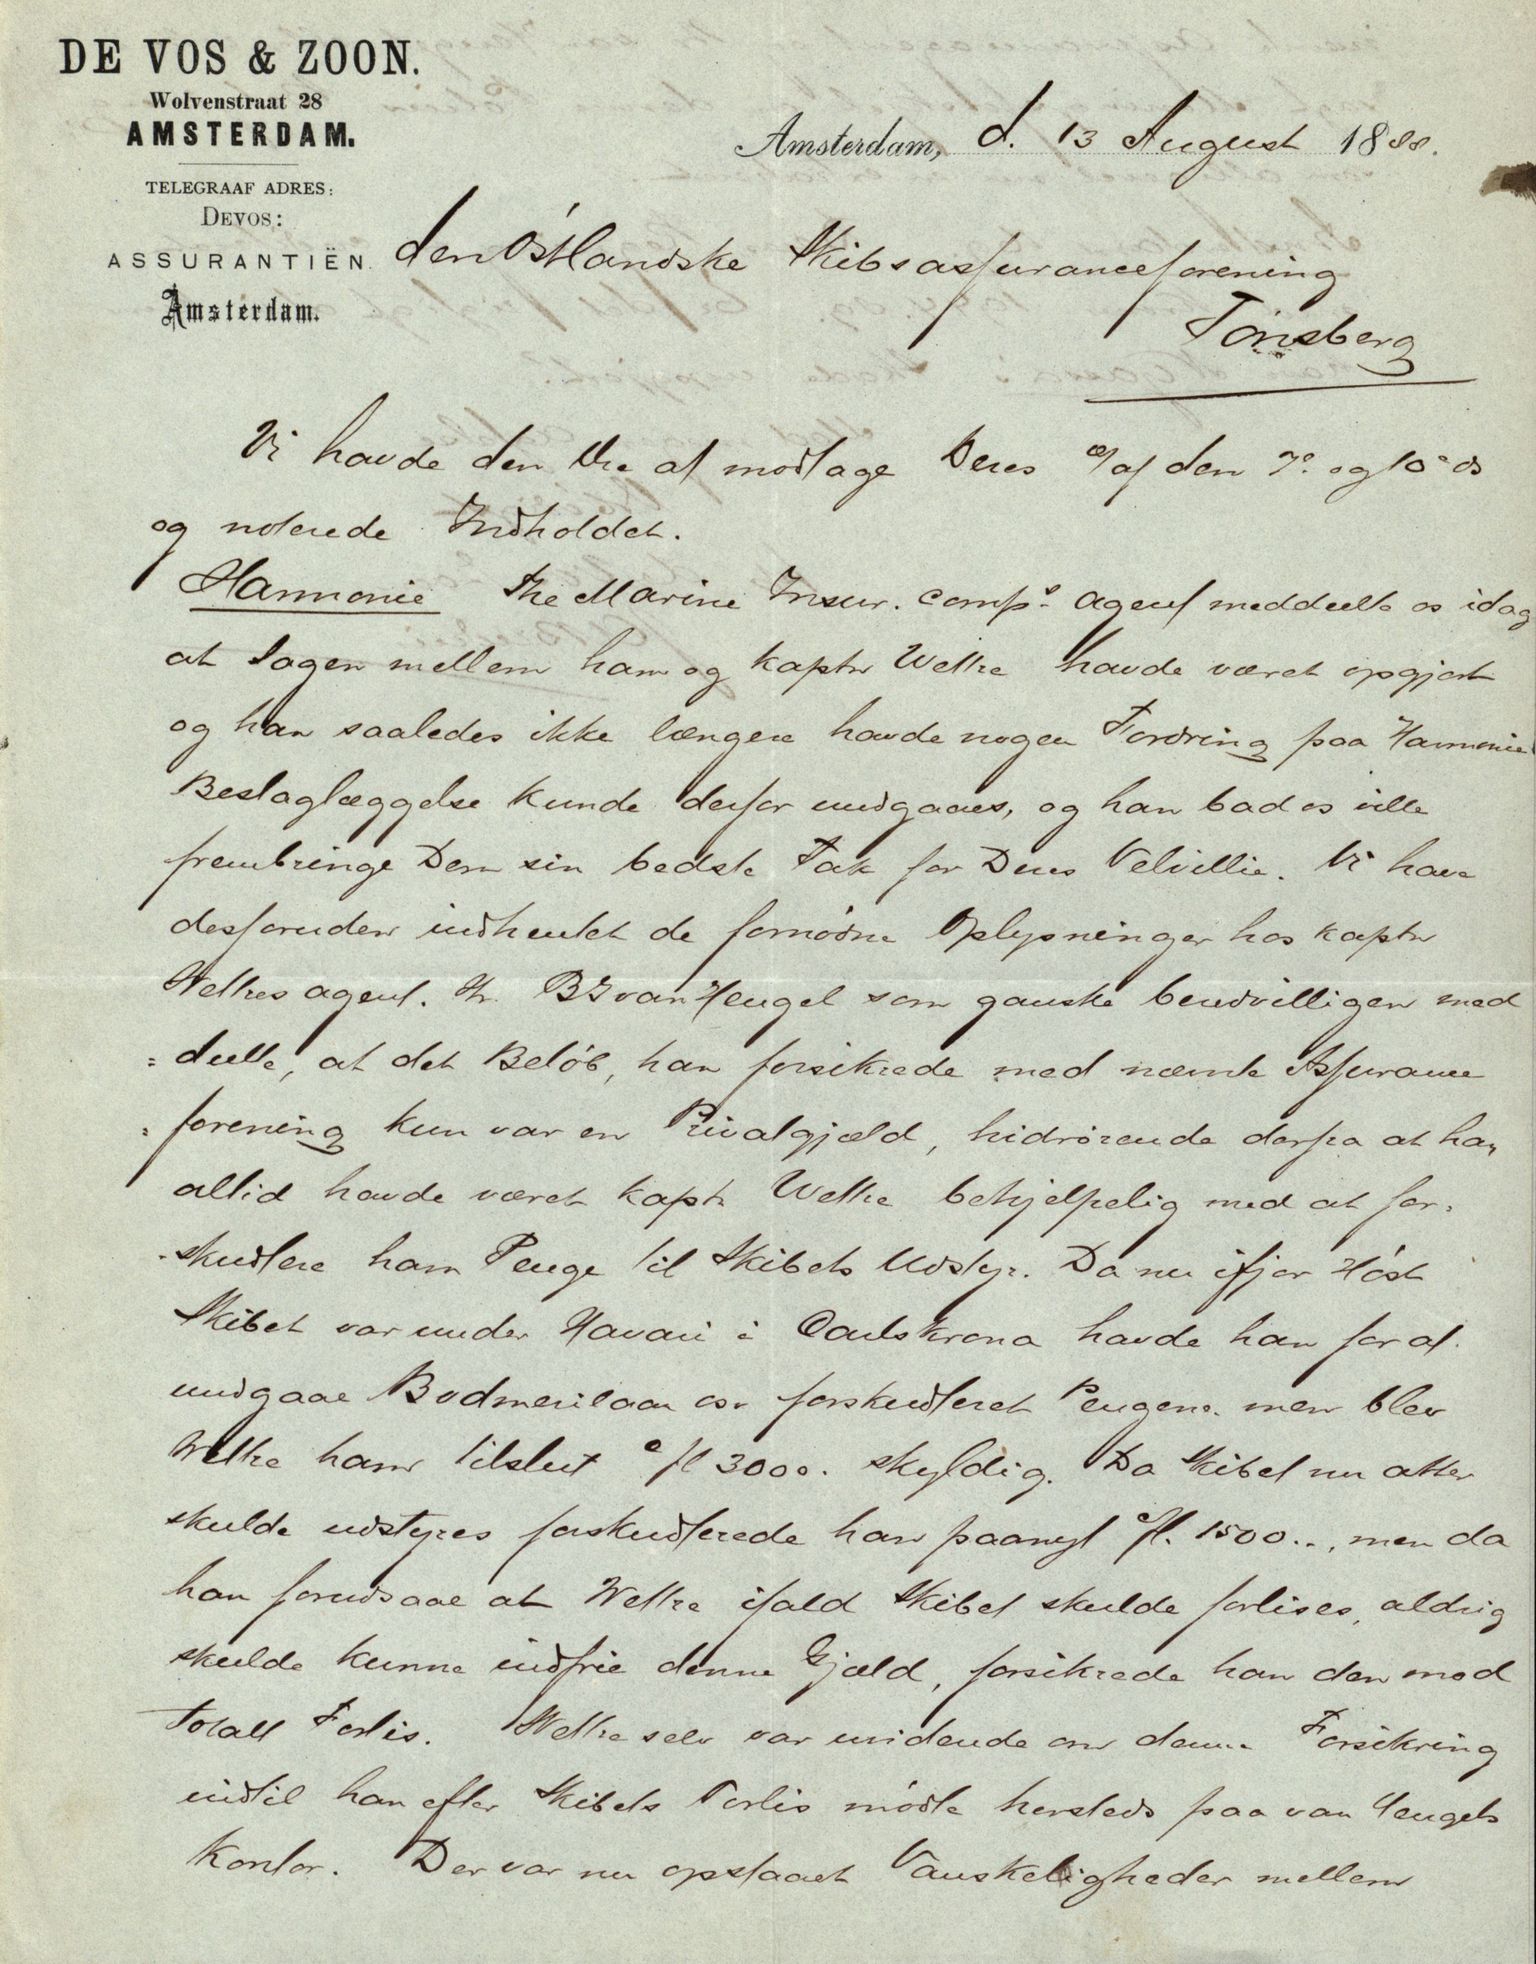 DE VOS & ZOON.
Wolvenstraat 28
AMSTERDAM.
TELEGRAAF ADRES:
DEVOS:
ASSURANTIËN.
Amsterdam.
Amsterdam, d. 13 August 1888.
den Østlandske Skibsassuranceforening
Tønsberg
Vi havde den Ære at modtage Deres af den 7de og 10de ds
og noterede Indholdet.
Harmonie The Marine Insur. Compy. agent meddeelte os idag
at Sagen mellem ham og Kaptn Welke havde været opgjort
og han saaledes ikke længere havde nogen Fordring paa Harmonie
Beslaglæggelse kunde derfor undgaaes, og han bad os ville
frembringe Dem sin bedste Tak for Deres Velvillie. Vi have
desforuden indhentet de fornødne Oplysninger hos Kaptn
Welkes agent. Hr. B J van Hengel som ganske beredvilligen med
=deelte, at det Beløb, han forsikrede med nævnte Assurance
=forening kun var en Privatgjæld, hidrørende derfra at han
altid havde været Kaptn Welke behjelpelig med at for=
=skudtere ham Penge til Skibets Udstyr. Da nu ifjor Høst
Skibet var under Havari i Carlskrona havde han for at
undgaae Bodmerilaan osv forskudteret Pengene. men blev
Welke ham tilslut c/fl 3000. skyldig. Da Skibet nu atter
skulde udstyres forskudterede han paanyt c/fl. 1500.., men da
han forudsaae at Welke ifald Skibet skulde forlises, aldrig
skulde kunne indfrie denne Gjæld, forsikrede han den mod
totalt Forlis. Welke selv var uvidende om denne Forsikring
indtil han efter Skibets Forlis mødte hersteds paa van Hengels
Kontor. Der var nu opstaaet Vanskeligheder mellem